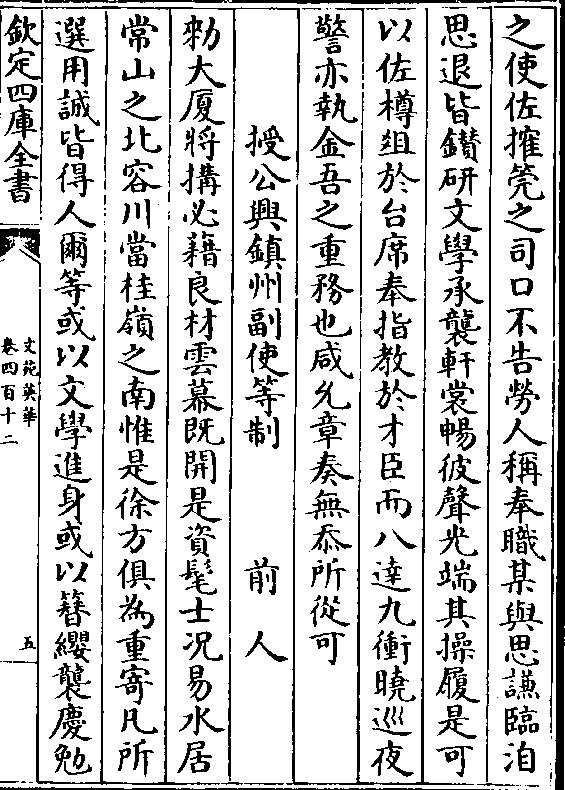 之使佐搉筦之司口不告勞人稱奉職某與思謙臨洎
思退皆鑚研文學承襲軒裳暢彼聲光端其操履是可
以佐樽俎於台席奉指教於才臣而八達九衝曉巡夜
警亦執金吾之重務也咸允章奏無忝所從可
授公興鎮州副使等制 前人
勑大厦將搆必藉良材雲幕既開是資髦士况易水居
常山之北容川當桂嶺之南惟是徐方俱為重寄凡所
選用誠皆得人爾等或以文學進身或以簪纓襲慶勉
欽定四庫全書
文苑英華
卷四百十二
五